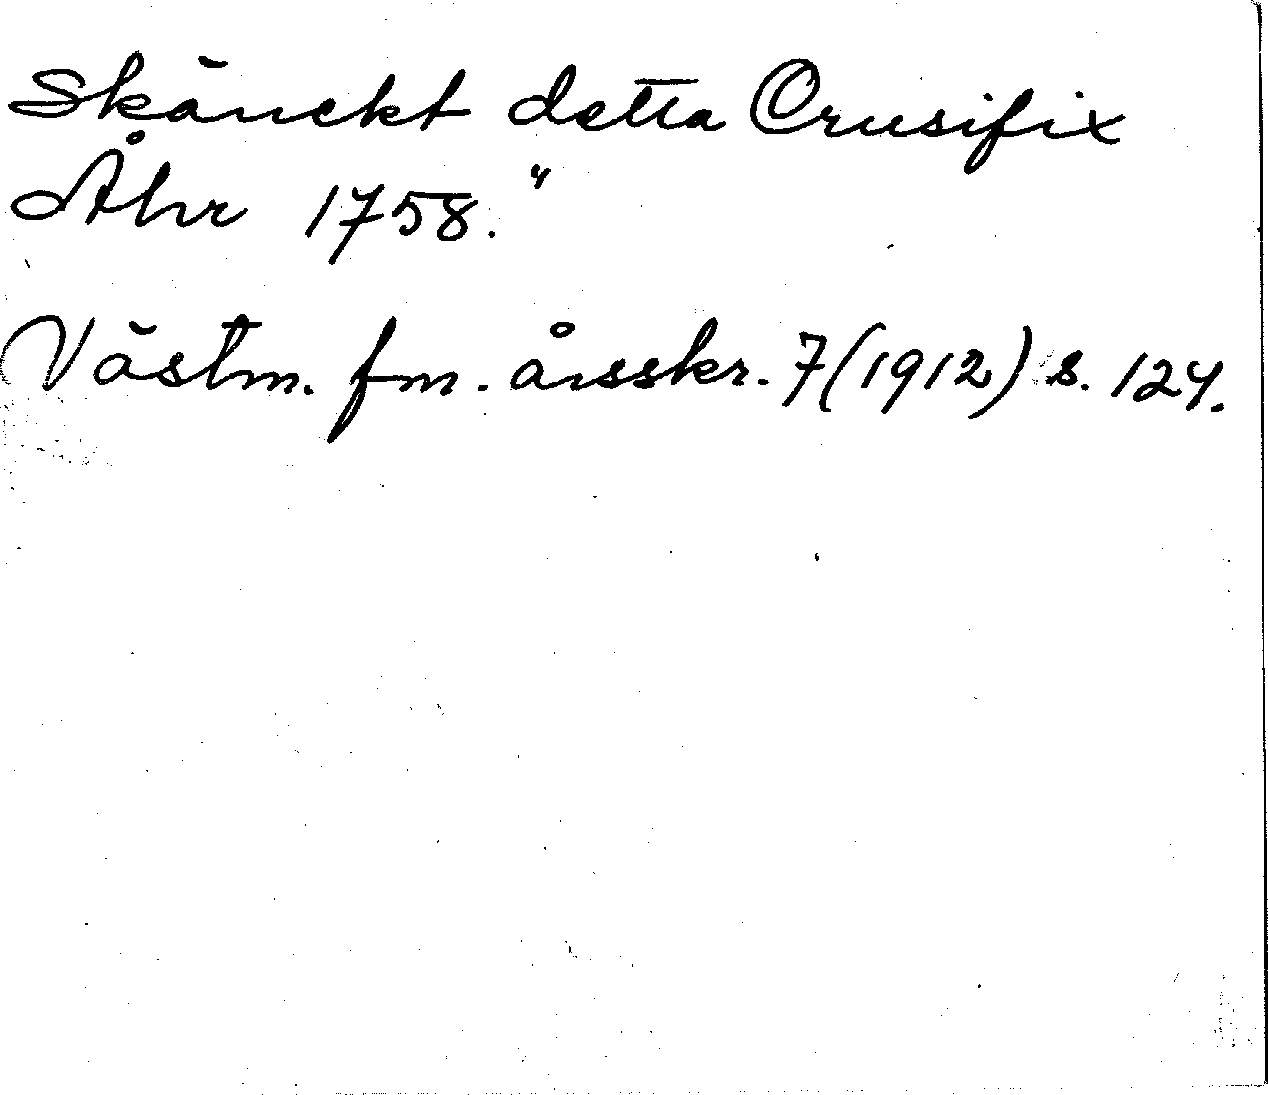 Skänckt detta Crusifix
Åhr 1758."
Västm. fm. årsskr. 7(1912) s. 124.